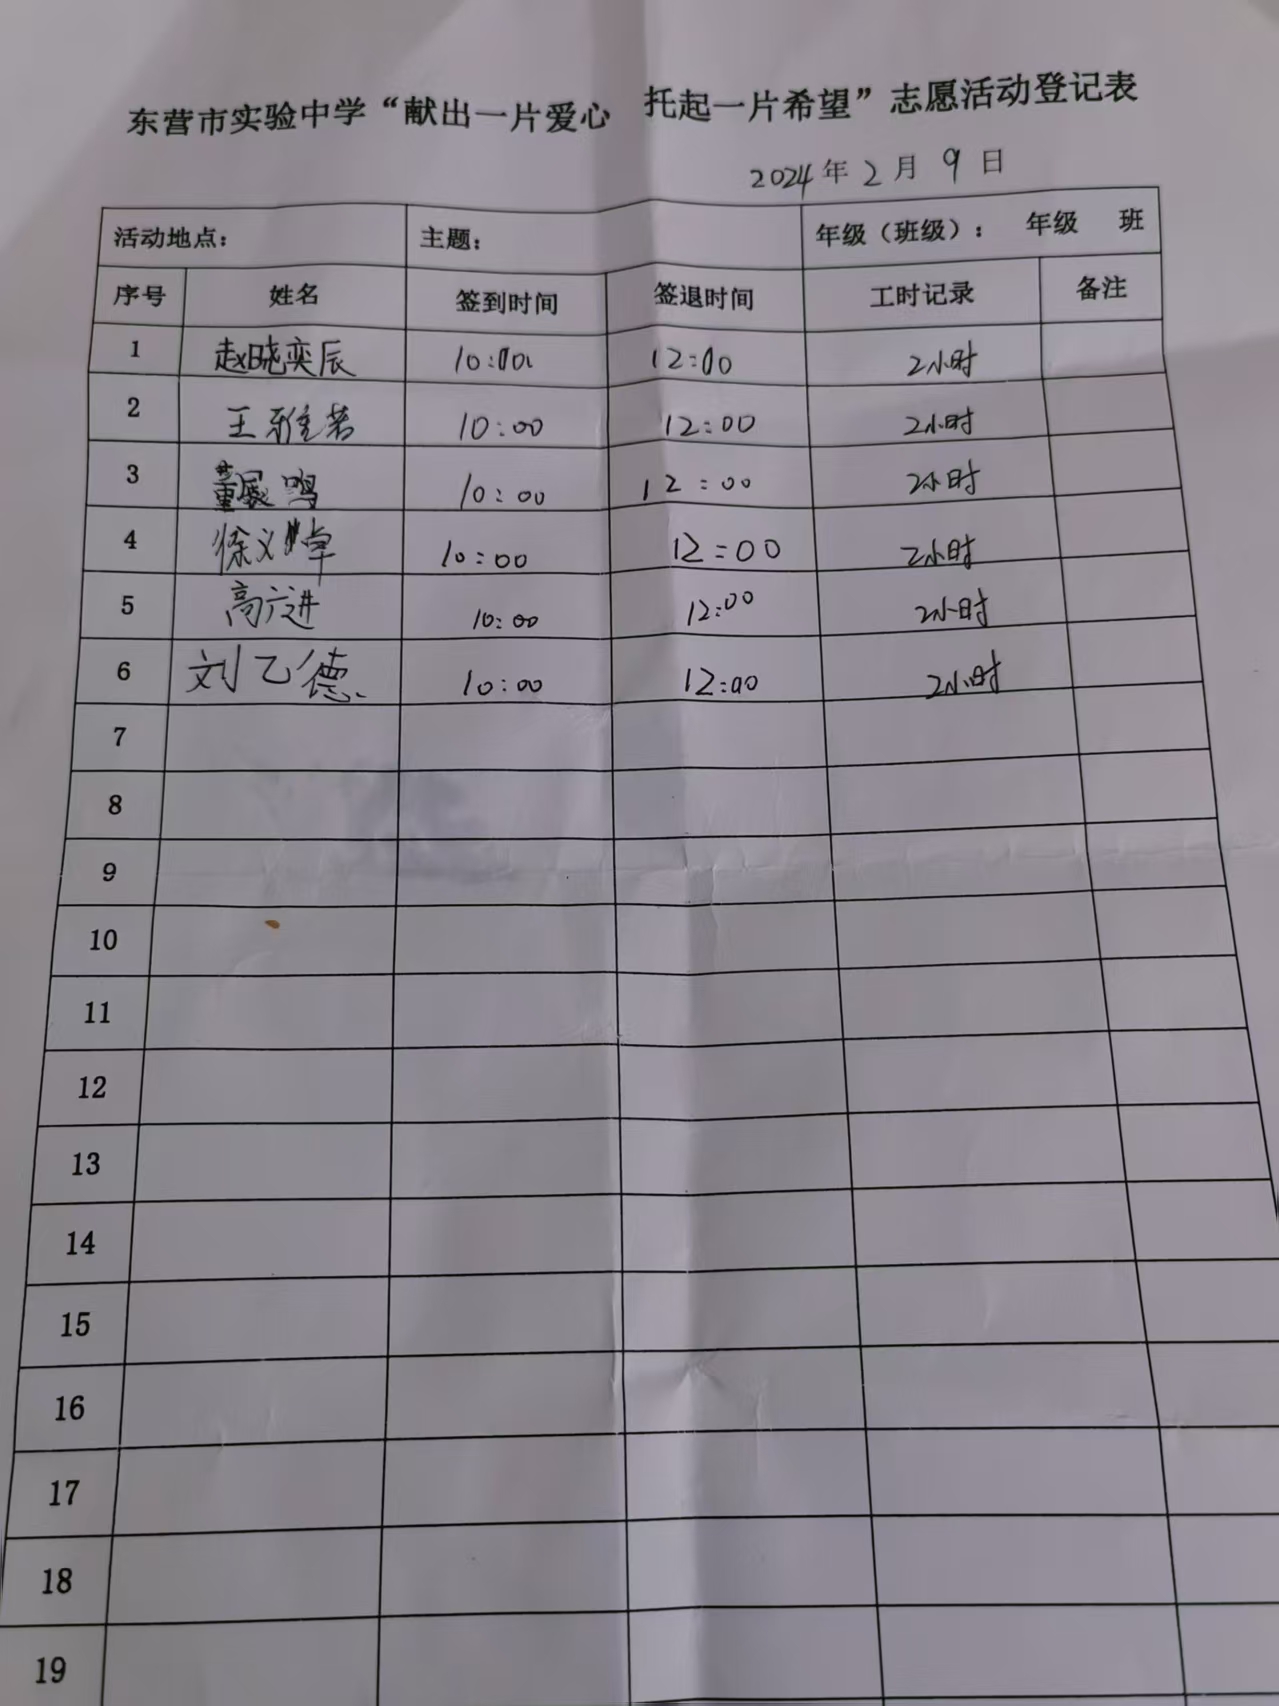 东营市实验中学“献出一片爱心 托起一片希望”志愿活动登记表
2024年2月9日
活动地点： 主题： 年级（班级）： 年级 班
序号 姓名 签到时间 签退时间 工时记录 备注
1 赵晓奕辰 10:00 12:00 2小时
2 王雅若 10:00 12:00 2小时
3 董展鸣 10:00 12:00 2小时
4 徐义卓 10:00 12:00 2小时
5 高广进 10:00 12:00 2小时
6 刘乙德 10:00 12:00 2小时
7
8
9
10
11
12
13
14
15
16
17
18
19